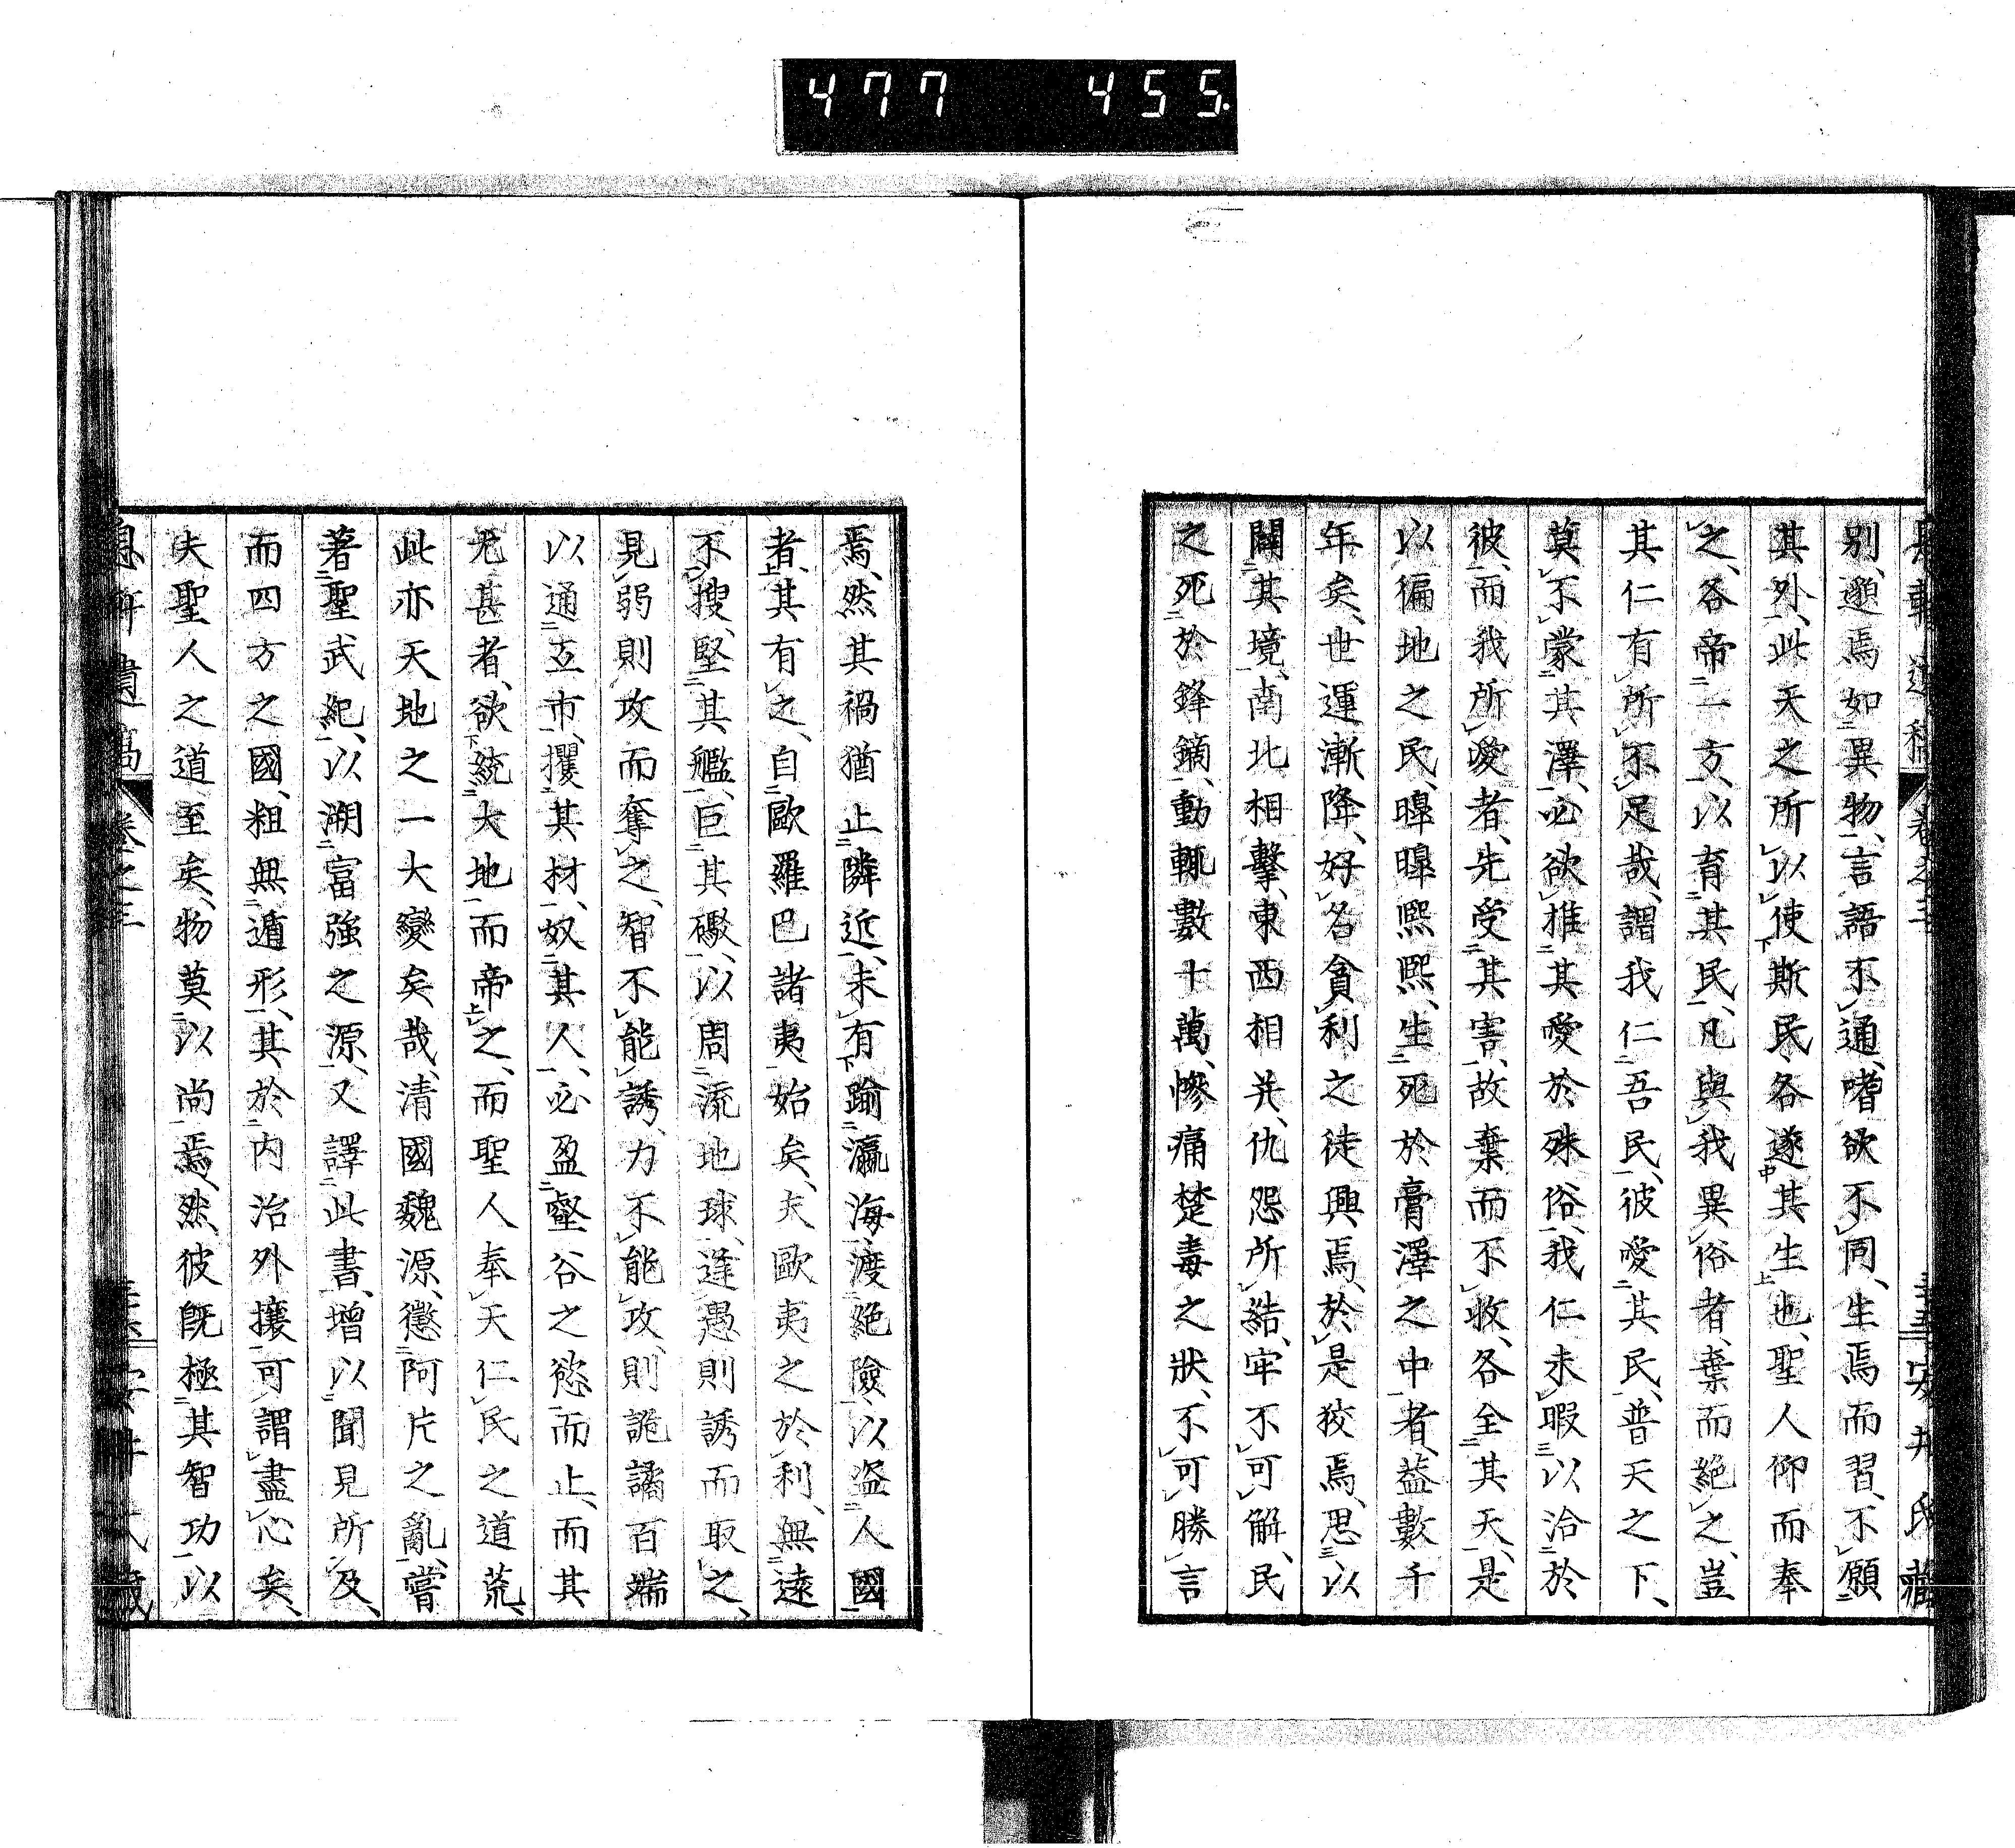 477 455.
別、邈焉如異物、言語不通、嗜欲不同、生焉而習、不願
其外、此天之所以使斯民各遂其生也、聖人仰而奉
之、各帝一方、以育其民、凡與我異俗者、棄而絕之、豈
其仁有所不足哉、謂我仁吾民、彼愛其民、普天之下、
莫不蒙其澤、必欲推其愛於殊俗、我仁未暇以洽於
彼、而我所愛者、先受其害、故棄而不收、各全其天、是
以徧地之民、皞皞熙熙、生死於膏澤之中者、蓋數千
年矣、世運漸降、好名貪利之徒興焉、於是狡焉、思以
闢其境、南北相擊、東西相并、仇怨所結、牢不可解、民
之死於鋒鏑、動輒數十萬、慘痛楚毒之狀、不可勝言
焉、然其禍猶止隣近、未有踰瀛海、渡絕險、以盜人國
者、其有之、自歐羅巴諸夷始矣、夫歐夷之於利、無遠
不搜、堅其艦、巨其礮、以周流地球、逢愚則誘而取之、
見弱則攻而奪之、智不能誘、力不能攻、則詭譎百端
以通互市、攫其材、奴其人、必盈壑谷之慾而止、而其
尤甚者、欲統大地而帝之、而聖人奉天仁民之道荒、
此亦天地之一大變矣哉、清國魏源、懲阿片之亂、嘗
著聖武紀、以溯富強之源、又譯此書、增以聞見所及、
而四方之國、粗無遁形、其於內治外攘、可謂盡心矣、
夫聖人之道至矣、物莫以尚焉、然彼既極其智功、以
息軒遺稿 卷之三 安井氏藏